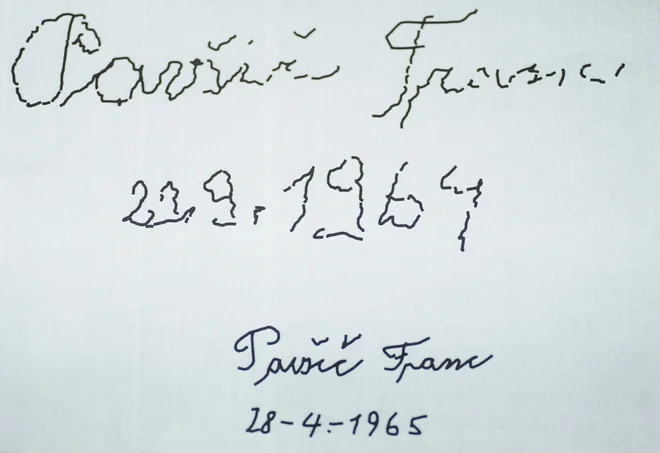 Pavšič Franc
22.9.1964
Pavšič Franc
28-4.-1965